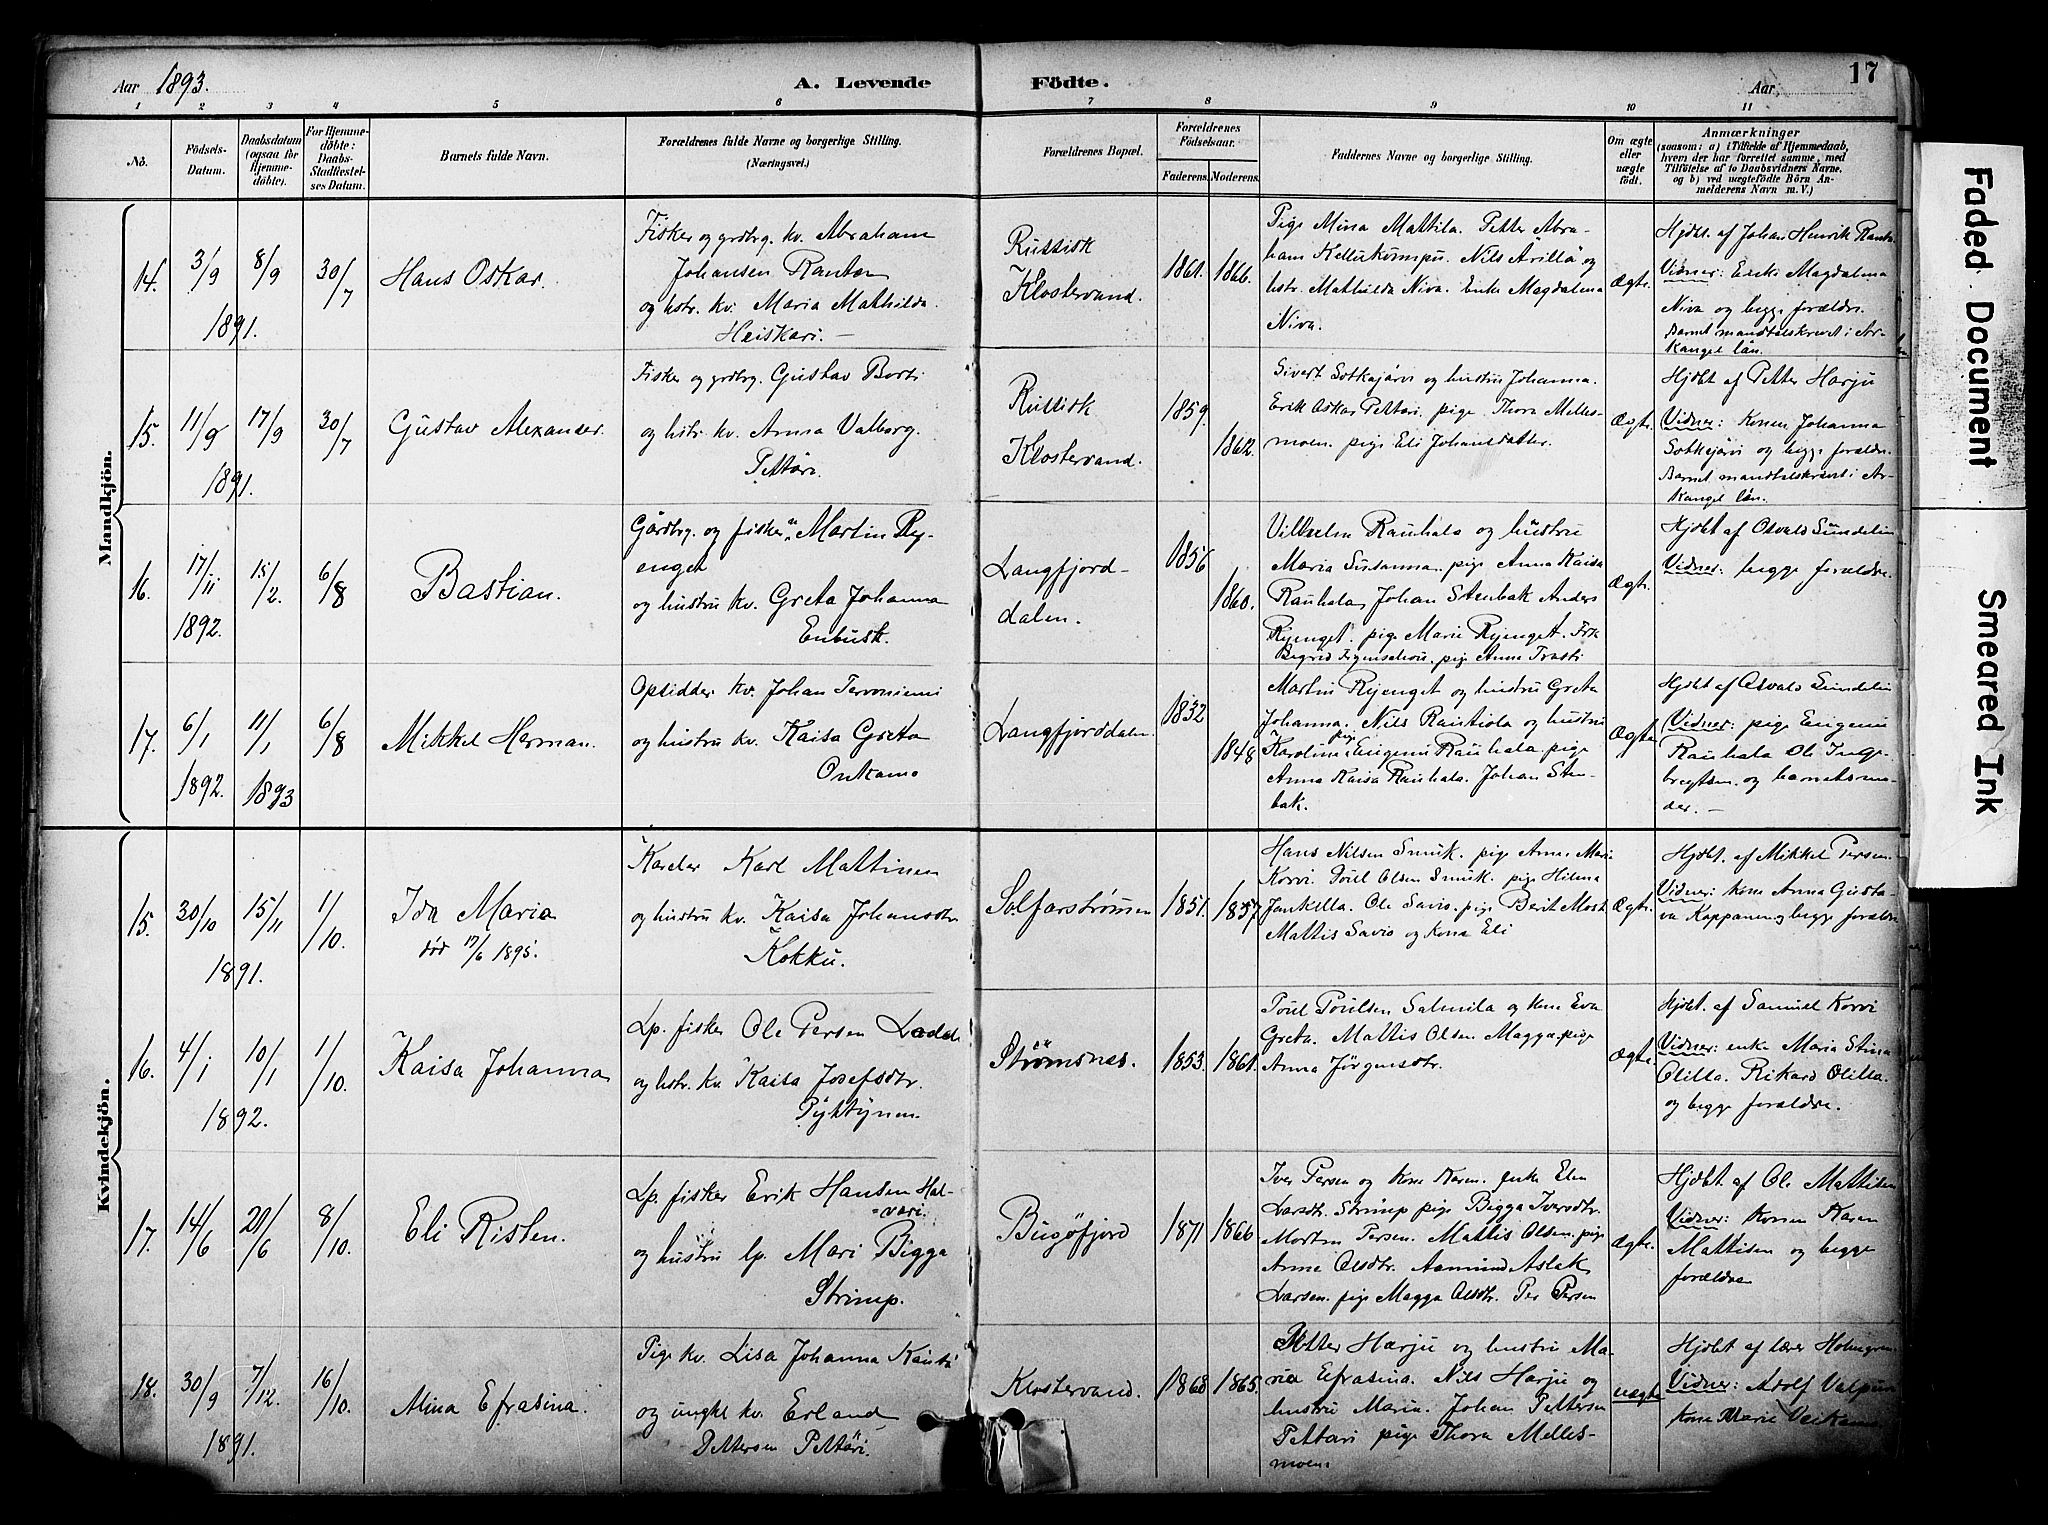 Aar 1893. A. Levende Födte. Aar 17
1 2 3 4 5 6 7 8 9 10 11
No.
Födsels-
Datum.
Daabsdatum
(ogsaa for
Hjemme-
döbte).
For Hjemme-
döbte:
Daabs-
Stadfæstel-
ses Datum.
Barnets fulde Navn.
Forældrenes fulde Navne og borgerlige Stilling.
(Næringsvei.)
Forældrenes Bopæl.
Forældrenes
Födselsaar.
Faderens. Moderens.
Faddernes Navne og borgerlige Stilling.
Om ægte
eller
uægte
födt.
Anmærkninger
(saasom: a) i Tilfælde af Hjemmedaab,
hvem der har forrettet samme, med
Tilföielse af to Daabsvidners Navne.
og b) ved uægtefödte Börn An-
melderens Navn m. V.)
Mandkjön.
14.
3/9
1891.
8/9
30/7
Hans Oskar.
Fisker og grdbrg. kv. Abraham
Johansen Rantan
og hstr. kv. Maria Mathilda
Heiskari.
Russisk
Klostervand.
1861. 1866.
Pige Mina Mattila. Petter Abra-
ham Kellukumpu. Nils Arilla og
hstr. Mathilda Niva. Enke Magdalena
Niva.
Ægte.
Hjdbt. af Johan Henrik Ranta
Vidner: Enke Magdalena
Niva og begge forældre.
Barnet mandtalskrevet i Ar-
kangel län.
15.
11/9
1891.
17/9
30/7
Gustav Alexander.
Fisker og grdbrg. Gustav Borti
og hstr. kv. Anna Valborg
Pettäri.
Russisk
Klostervand.
1859.
1862.
Sivert Sotkajärvi og hustru Johanna.
Erik Oskar Pettäri. pige Thora Melles-
moen. pige Eli Johansdatter.
Ægte.
Hjdbt af Petter Harju
Vidner: Konen Johanna
Sotkajärvi og begge forældre.
Barnet mandtalskrevet i Ar-
kangel län.
16.
17/11
1892.
15/2.
6/8
Bastian.
Gårdbrg. og fisker Martin Ry-
enget
og hustru kv. Greta Johanna
Enbusk.
Langfjord-
dalen.
1856
1860.
Vilhelm Rauhala og hustru
Maria Susanna. pige Anna Kaisa
Rauhala, Johan Stenbak Anders
Ryenget. pige Marie Ryenget. Frk
pige Anna Trasti
Ægte.
Hjdbt af Osvald Sundelin
Vidner: begge forældre.
17.
6/1
1892.
11/1
1893
6/8
Mikkel Herman.
Opsidder kv. Johan Tervoniemi
og hustru kv. Kaisa Greta
Onkamo
Langfjorddalen.
1832
1848
Martin Ryenget og hustru Greta
Johanna. Nils Rautiola og hustru
Karolina pige Eugenie Rauhala. pige
Anna Kaisa Rauhala. Johan Sten-
bak.
Ægte
Hjdbt af Osvald Sundelin
Vidner: pige Eugenie
Rauhala Ole Inge-
bregtsen. og barnets mo-
der.
Kvindekjön.
15.
30/10
1891.
15/11
1/10.
Ida Maria
död 17/6 1895.
Karl Mattinen
og hustru kv. Kaisa Johansdtr
Kokku.
Solfarströmmen
1851. 1857
Hans Nilsen Smuk. pige Anna Maria
Korvi. Poul Olsen Smuk. pige Hilma
Jankilla. Ole Savio. pige Berit Most
Mattis Savio og Kona Eli
Ægte.
Hjdbt. af Mikkel Persen.
Vidner: Kone Anna Gusta-
va Koppanen og begge forældre
16.
4/1
1892.
10/1
1/10.
Kaisa Johanna
Lp. fisker Ole Persen Ladde
og hstr. kv. Kaisa Josefsdtr.
Pyktynen.
Strömsnes.
1853. 1861.
Poul Poulsen Salmila og Kone Eva
Greta. Mattis Olsen Magga. pige
Anna Jörgensdtr.
Ægte
Hjdbt. af Samuel Korvi
Vidner: enke Maria Stina
Olilla. Rikard Olilla.
og begge forældre.
17.
14/6
20/6
8/10.
Eli Risten.
Lp. fisker Erik Hansen Hal-
vari.
og hustru lp. Mari Bigga
Strimp.
Bugöfjord
1871 1866
Iver Persen og Kone Karen. Enke Elen
Larsdtr. Strimp pige Bigga Iversdtr.
Morten Persen. Mattis Olsen. pige
Anne Olsdtr. Aamund Aslak
Larsen. pige Magga Olsdtr. Per Persen
Ægte.
Hjdbt. af Ole Mattisen
Vidner: Konen Karen
Mattisen og begge
forældre
18.
30/9
1891.
7/12.
16/10.
Alina Efrasina.
Pige kv. Lisa Johanna
og ungkl kv. Erland
Pettersen Pettäri.
Klostervand.
1868 1865.
Petter Harju og hustru Ma-
ria Efrasina. Nils Harju og
hustru Maria. Johan Pettersen
Pettäri pige Thora Melles-
moen.
uægte
Hjdbt af lærer Holmgren
Vidner: Adolf
Kone Marie
Faded Document
Smeared Ink